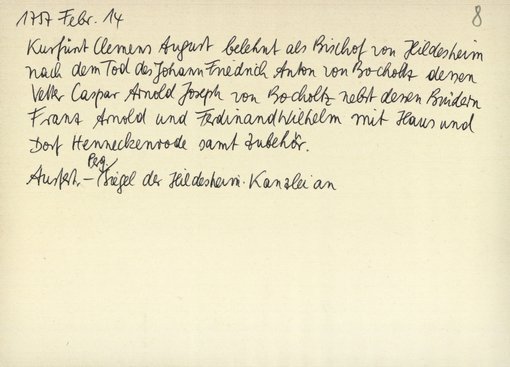 1757 Febr. 14
8
Kurfürst Clemens August belehnt als Bischof von Hildesheim
nach dem Tod des Johann Friedrich Anton von Bocholtz dessen
Vetter Caspar Arnold Joseph von Bocholtz nebst dessen Brüdern
Franz Arnold und Ferdinand Wilhelm mit Haus und
Dorf Henneckenrode samt Zubehör.
Ausfert. – Perg. Siegel der Hildesheim. Kanzlei an